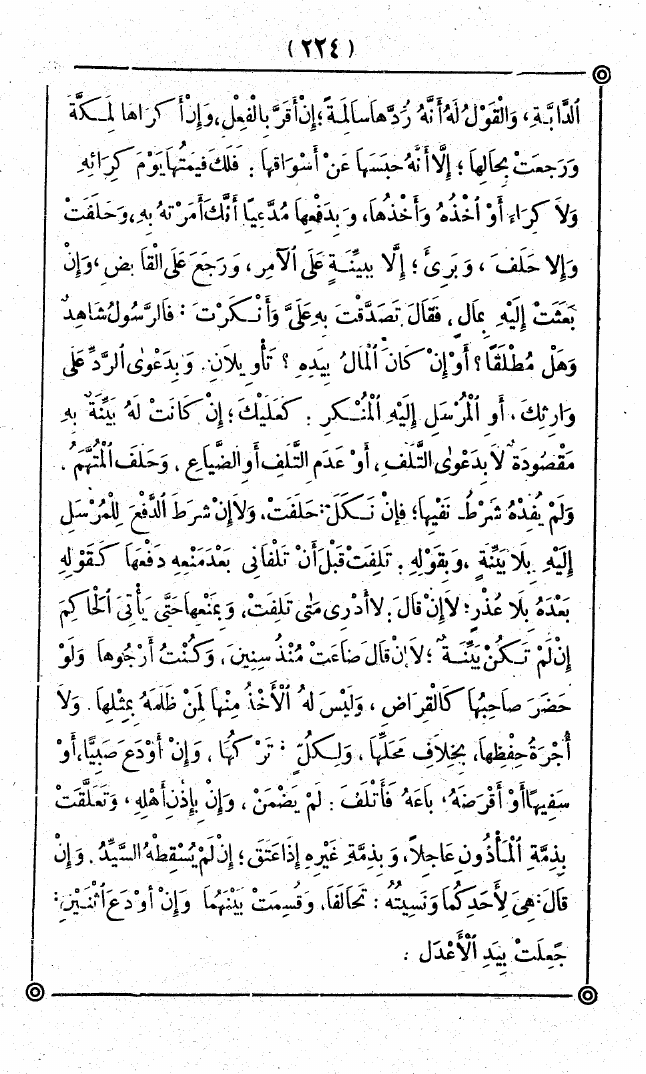 (٢٢٤)
الدَّابَّةِ، وَالْقَوْلُ لَهُ أَنَّهُ رَدَّهَا سَالِمَةً؛ إِنْ أَقَرَّ بِالْفِعْلِ، وَإِنْ أَكْرَاهَا لِمَكَّةَ
وَرَجَعَتْ بِحَالِهَا؛ إِلَّا أَنَّهُ حَبَسَهَا عَنْ أَسْوَاقِهَا: فَلَكَ قِيمَتُهَا يَوْمَ كِرَائِهِ
وَلَا كِرَاءَ أَوْ أَخْذُهُ وَأَخْذُهَا، وَبِدَفْعِهَا مُدَّعِيًا أَنَّكَ أَمَرْتَهُ بِهِ، وَحَلَفْتَ
وَإِلَّا حَلَفَ، وَبَرِئَ؛ إِلَّا بِبَيِّنَةٍ عَلَى الْآمِرِ، وَرَجَعَ عَلَى الْقَابِضِ، وَإِنْ
بَعَثْتَ إِلَيْهِ بِمَالٍ، فَقَالَ تَصَدَّقْتَ بِهِ عَلَيَّ وَأَنْكَرْتَ: فَالرَّسُولُ شَاهِدٌ
وَهَلْ مُطْلَقًا؟ أَوْ إِنْ كَانَ الْمَالُ بِيَدِهِ؟ تَأْوِيلَانِ. وَبِدَعْوَى الرَّدِّ عَلَى
وَارِثِكَ، أَوِ الْمُرْسَلِ إِلَيْهِ الْمُنْكِرِ. كَعَلَيْكَ؛ إِنْ كَانَتْ لَهُ بَيِّنَةٌ بِهِ
مَقْصُودَةٌ لَا بِدَعْوَى التَّلَفِ، أَوْ عَدَمِ التَّلَفِ أَوِ الضَّيَاعِ، وَحَلَفَ الْمُتَّهَمُ.
وَلَمْ يُفِدْهُ شَرْطُ نَفْيِهَا؛ فَإِنْ نَكَلَ: حَلَفْتَ، وَلَا إِنْ شَرَطَ الدَّفْعَ لِلْمُرْسَلِ
إِلَيْهِ بِلَا بَيِّنَةٍ، وَبِقَوْلِهِ. تَلِفَتْ قَبْلَ أَنْ تَلْقَانِي بَعْدَ مَنْعِهِ دَفْعَهَا كَقَوْلِهِ
بَعْدَهُ بِلَا عُذْرٍ؛ لَا إِنْ قَالَ: لَا أَدْرِي مَتَى تَلِفَتْ، وَبِمَنْعِهَا حَتَّى يَأْتِيَ الْحَاكِمَ
إِنْ لَمْ تَكُنْ بَيِّنَةٌ؛ لَا إِنْ قَالَ ضَاعَتْ مُنْذُ سِنِينَ، وَكُنْتُ أَرْجُوهَا وَلَوْ
حَضَرَ صَاحِبُهَا كَالْقِرَاضِ، وَلَيْسَ لَهُ الْأَخْذُ مِنْهَا لِمَنْ ظَلَمَهُ بِمِثْلِهَا. وَلَا
أُجْرَةُ حِفْظِهَا، بِخِلَافِ مَحَلِّهَا، وَلِكُلٍّ: تَرْكُهَا، وَإِنْ أَوْدَعَ صَبِيًّا، أَوْ
سَفِيهًا أَوْ أَقْرَضَهُ، بَاعَهُ فَأَتْلَفَ: لَمْ يَضْمَنْ، وَإِنْ بِإِذْنِ أَهْلِهِ، وَتَعَلَّقَتْ
بِذِمَّةِ الْمَأْذُونِ عَاجِلًا، وَبِذِمَّةِ غَيْرِهِ إِذَا عَتَقَ؛ إِنْ لَمْ يُسْقِطْهُ السَّيِّدُ. وَإِنْ
قَالَ: هِيَ لِأَحَدِكُمَا وَنَسِيتُهُ: تَحَالَفَا، وَقُسِمَتْ بَيْنَهُمَا وَإِنْ أَوْدَعَ اثْنَيْنِ:
جُعِلَتْ بِيَدِ الْأَعْدَلِ: